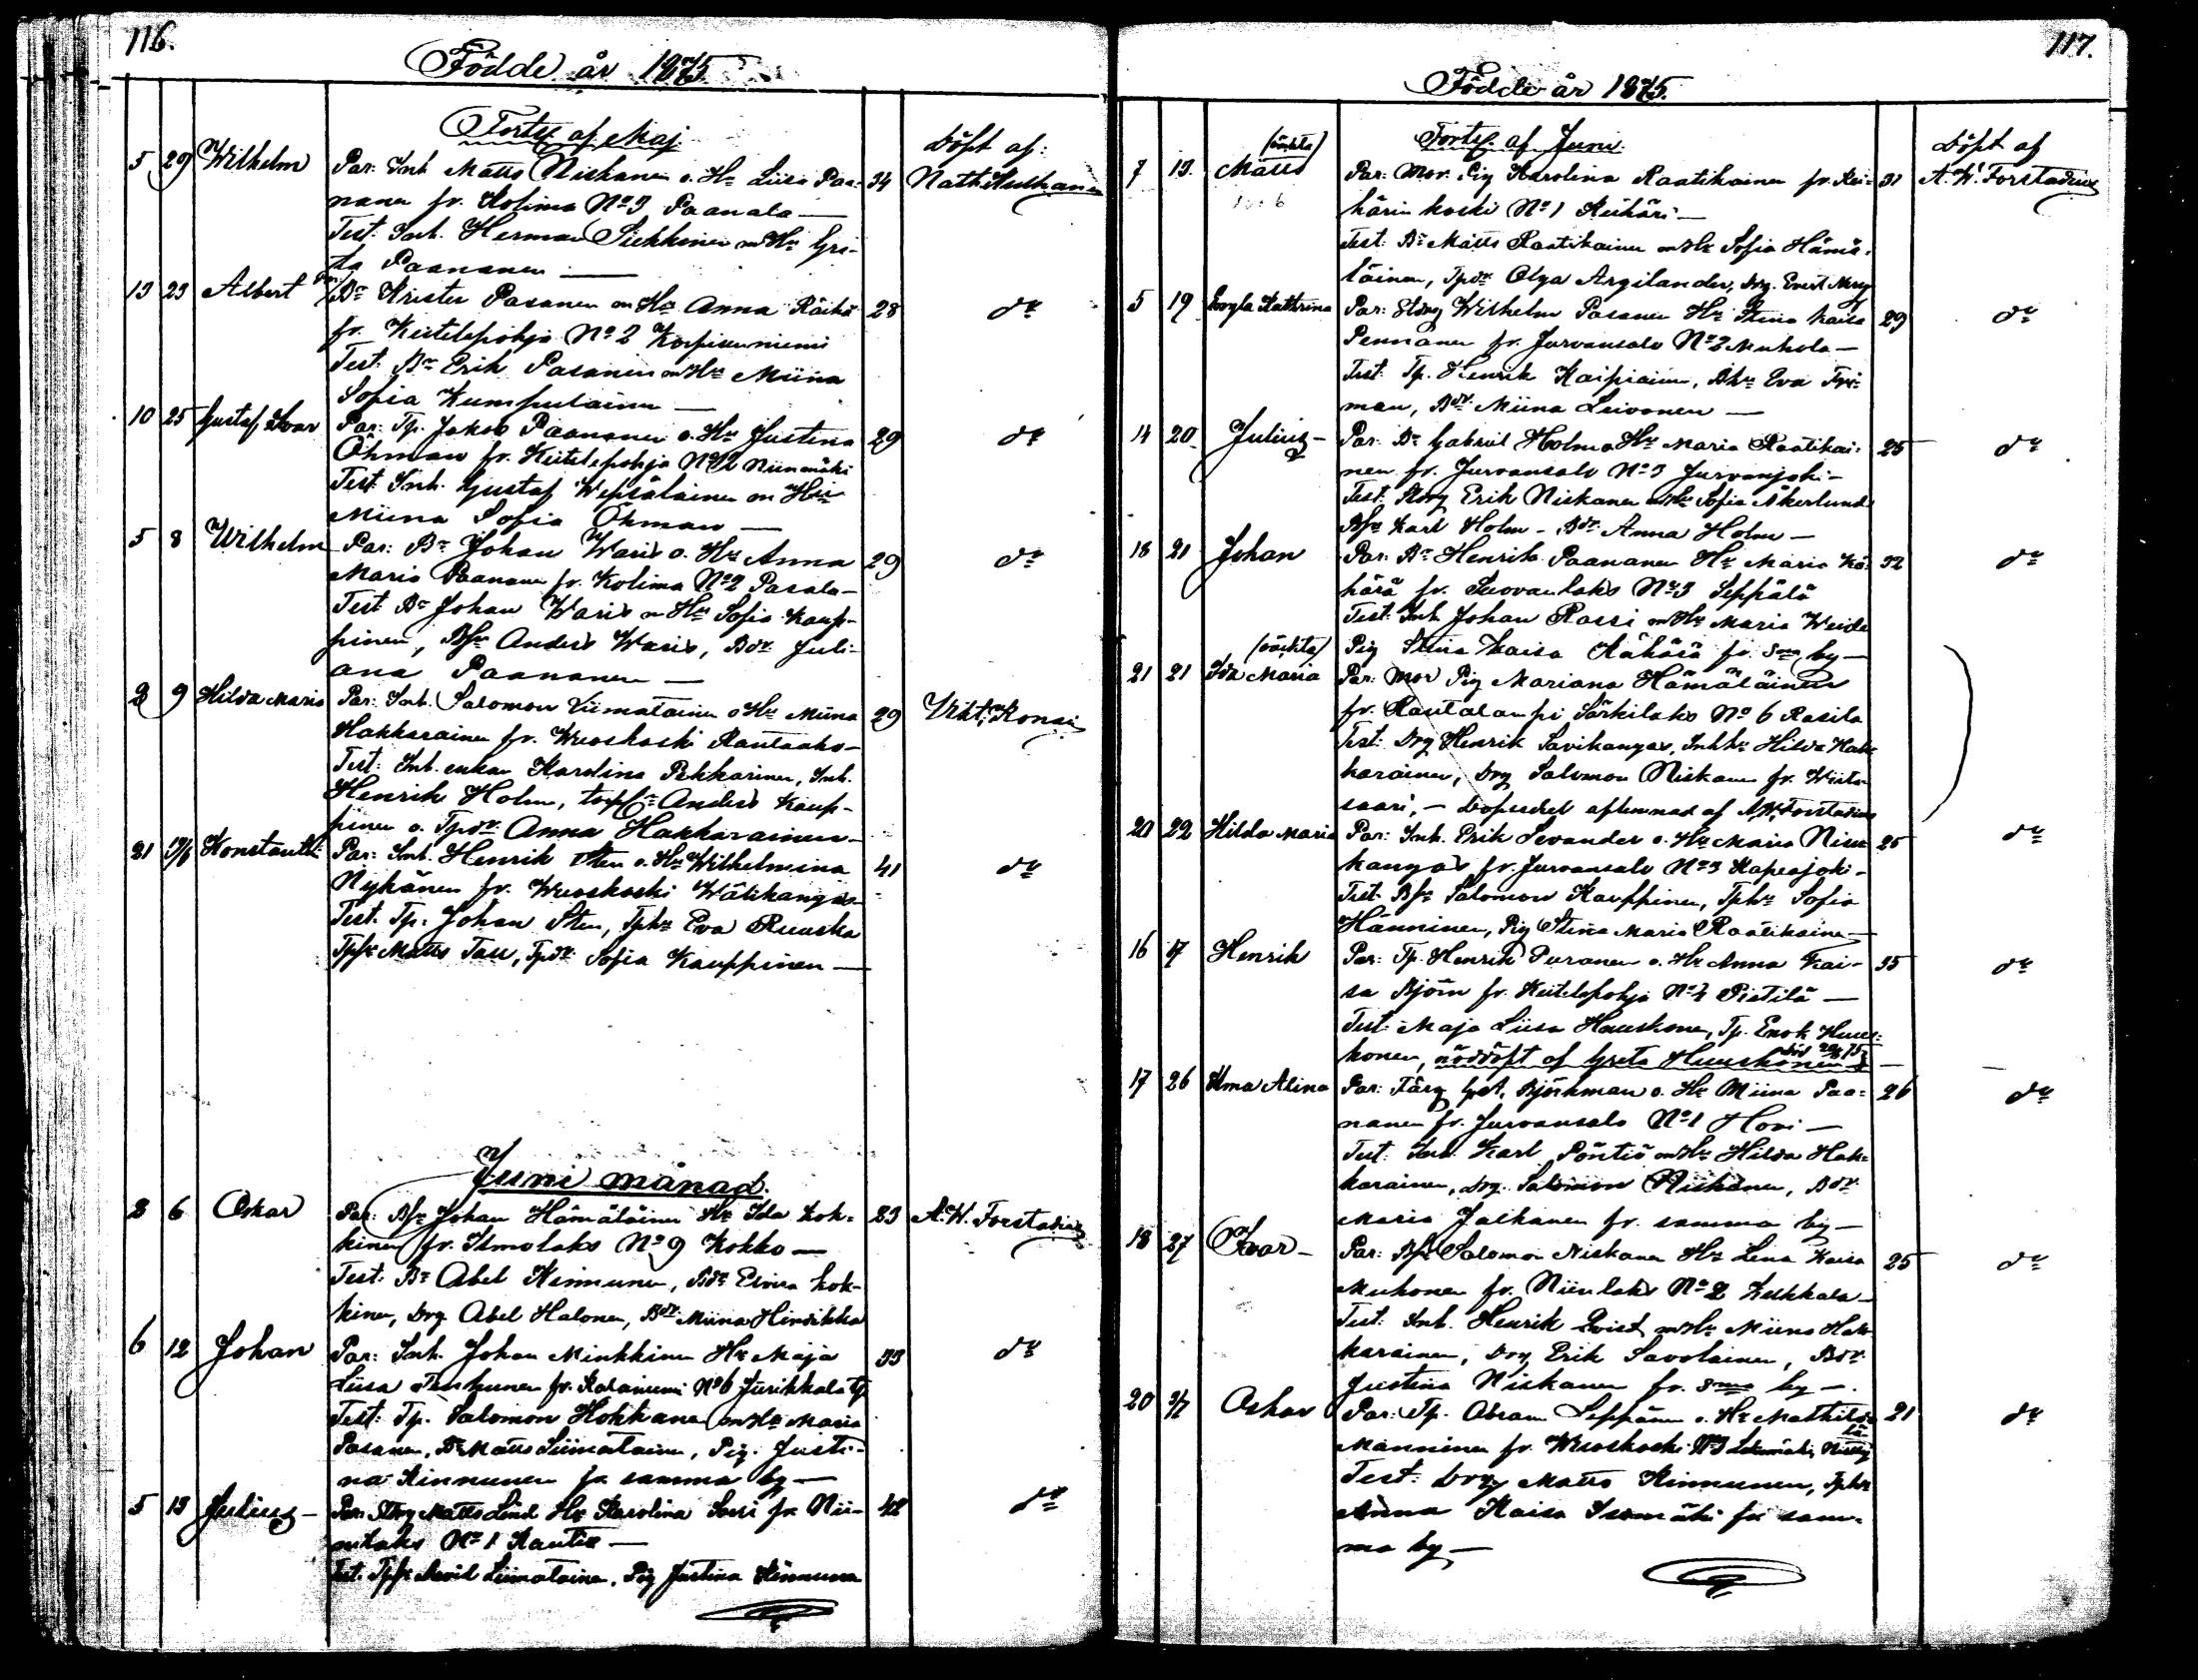 116.
Födde år 1875.
Forts. af Maj
Döpt af:
5 29 Wilhelm Par: Inh Matts Niskanen o. Hu Liisa Paa- 34 Nath.
nanen fr. Kolima No 3 Paanala —
Test. Inh. Herman Piekkinen m Hu Gre-
ta Paananen —
13 23 Albert Par: Be Krister Pasanen o. Hu Anna Räihä 28 do
fr. Keitelepohja No 2 Korpisenniemi
Test. Be Erik Pasanen m Hu Miina
Sofia Kumpulainen —
10 25 Gustaf Ivar Par: Tp. Jakob Paananen o. Hu Justina 29 do
Öhman fr. Keitelepohja No 2 Niinimäki
Test. Inh. Gustaf Wepsäläinen m Hu
Miina Sofia Öhman —
5 8 Wilhelm Par: Be Johan Waris o. Hu Anna 29 do
Maria Paananen fr. Kolima No 2 Pasala —
Test Be Johan Waris m Hu Sofia Kaup-
pinen, Bse Anders Waris, Bdr Juli-
ana Paananen —
2 9 Hilda Maria Par: Inh. Salomon Liimatainen o Hu Miina 29 Vikt. Konsin
Hakkarainen fr. Wuoskoski Rautaaho —
Test: Inh. enkan Karolina Pekkarinen, Inh.
Henrik Holm, Anders Kaup-
pinen o. Tpdr Anna Hakkarainen —
21 13/6 Konstantin Par: Inh. Henrik Sten o. Hu Wilhelmina 41 do
Nykänen fr. Wuoskoski Wälikangas
Test. Tp. Johan Sten, Tphu Eva Ruuska
Tpse Matts Tall, Tpdr Sofia Kauppinen —
Juni månad.
2 6 Oskar Par: Bse Johan Hämäläinen Hu Ida Kok- 23 A. W. Forstadius
kinen fr. Ilmolaks No 9 Kokko —
Test: Be Abel Kinnunen, Bdr Elvira Kok-
kinen, Drg Abel Halonen, Bdr Miina Hirsikka
6 12 Johan Par: Inh. Johan Minkkinen Hu Maja 33 do
Liisa Tenhunen fr. Kolaniemi No 6 Jurikkala
Test: Tp. Salomon Hokkanen m Hu Maria
Pasanen, Be Matts Liimatainen, Pig. Justi-
na Kinnunen fr samma by —
5 13 Julius Par: Stdrg Matts Lind Hu Karolina Sorri fr. Nii- 42 do
nilaks No 1 Rautia —
Test. Tpse Liimatainen, Pig Justina Kinnunen
117.
Födde år 1875.
Forts. af Juni.
Döpt af
(oäkta)
7 13. Matts Par: Mor. Pig Karolina Raatikainen fr. Kei- 31 A. W. Forstadius
härinkoski No 1 Keihäri —
Test: Be Matts Raatikainen m Hu Sofia Hämä-
läinen, Tpdr Olga Argilander, Drg. Evert Merg
5 19 Katharina Par: Stdrg Wilhelm Pasanen Hu Stina Kaisa 29 do
Pennanen fr. Jurvansalo No 2 Muhola —
Test: Tp. Henrik Kaipiainen, Bhu Eva Fri-
man, Bdr Miina Leivonen —
14 20 Julius Par: Be Gabriel Holm o Hu Maria Raatikai- 25 do
nen fr. Jurvansalo No 3 Jurvanjoki —
Test: Stdrg Erik Niskanen m Hu Sofia Åkerlund
Bse Karl Holm — Bdr Anna Holm —
18 21 Johan Par: Be Henrik Paananen Hu Maria Kä- 32 do
härä fr. Suovanlaks No 3 Seppälä
Test: Inh Johan Rossi m Hu Maria Weide
Pig Stina Kaisa Kähärä fr. sma by —
(oäkta)
21 21 Ida Maria Par: Mor Pig Mariana Hämäläinen
fr. Rautalampi Särkilaks No 6 Rasila
Test: Drg Henrik Savikangas, Inhhu Hilda Hak-
karainen, Drg Salomon Niskanen fr. Wiita-
saari, — Dopsedel aflemnad af A. W. Forstadius
20 22 Hilda Maria Par: Inh. Erik Sevander o. Hu Maria Nisu- 25 do
kangas fr. Jurvansalo No 3 Kapeajoki —
Test: Bse Salomon Kauppinen, Tphu Sofia
Hänninen, Pig Stina Maria Raatikainen —
16 17 Henrik Par: Tp. Henrik Puranen o. Hu Anna Kai- 35 do
sa Björn fr. Keitelepohja No 4 Pietilä —
Test: Maja Liisa Huuskonen, Tp. Enok Huus-
konen, nöddöpt af Greta Huuskonen
17 26 Alma Alina Par: Färg G. A. Björkman o. Hu Miina Paa- 26 do
nanen fr. Jurvansalo No 1 Hovi —
Test: Inh. Karl Pöntiö m Hu Hilda Hak-
karainen, Drg. Salomon Niskanen, Bdr
Maria Jalkanen fr. samma by —
18 27 Ivar — Par: Bse Salomon Niskanen Hu Lena Kaisa 25 do
Muhonen fr. Niinilaks No 2 Keskkala —
Test: Inh. Henrik Qvist m Hu Miina Hak-
karainen, Drg Erik Savolainen, Bdr
Justina Niskanen fr. sma by —
20 4/7 Oskar Par: Tp. Abram Leppänen o. Hu Mathilda 21 do
Manninen fr. Wuoskoski No 3
Test: Drg Matts Kinnunen, Tphu
Anna Kaisa Isomäki fr sam-
ma by —